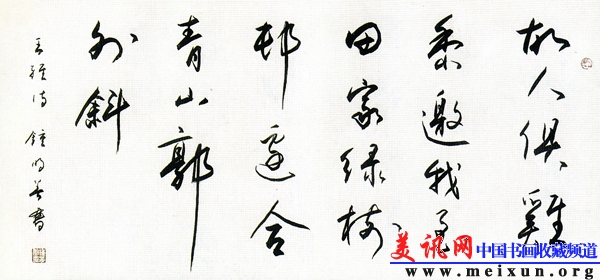 故人俱雞
黍邀我至
田家绿樹
邨邊合
青山郭
外斜
王維诗 鍾明善書
美讯网 中国书画收藏频道
www.meixun.org